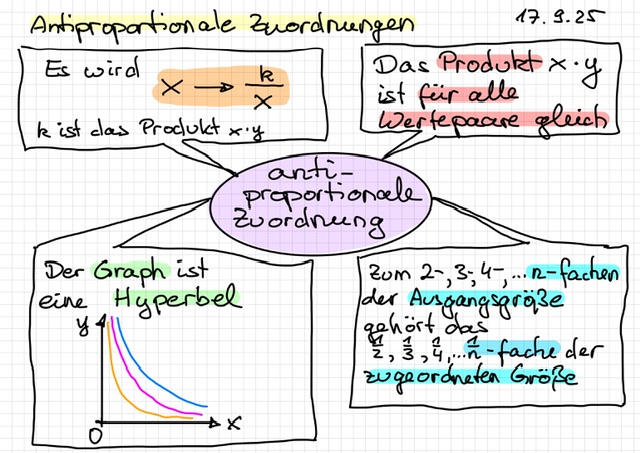 Antiproportionale Zuordnungen
17.9.25
Es wird
x → k/x
k ist das Produkt x·y
Das Produkt x·y
ist für alle
Wertepaare gleich
anti-
proportionale
Zuordnung
Der Graph ist
eine Hyperbel
y
x
0
Zum 2-, 3-, 4-, ... n-fachen
der Ausgangsgröße
gehört das
1/2, 1/3, 1/4, ... 1/n-fache der
zugeordneten Größe